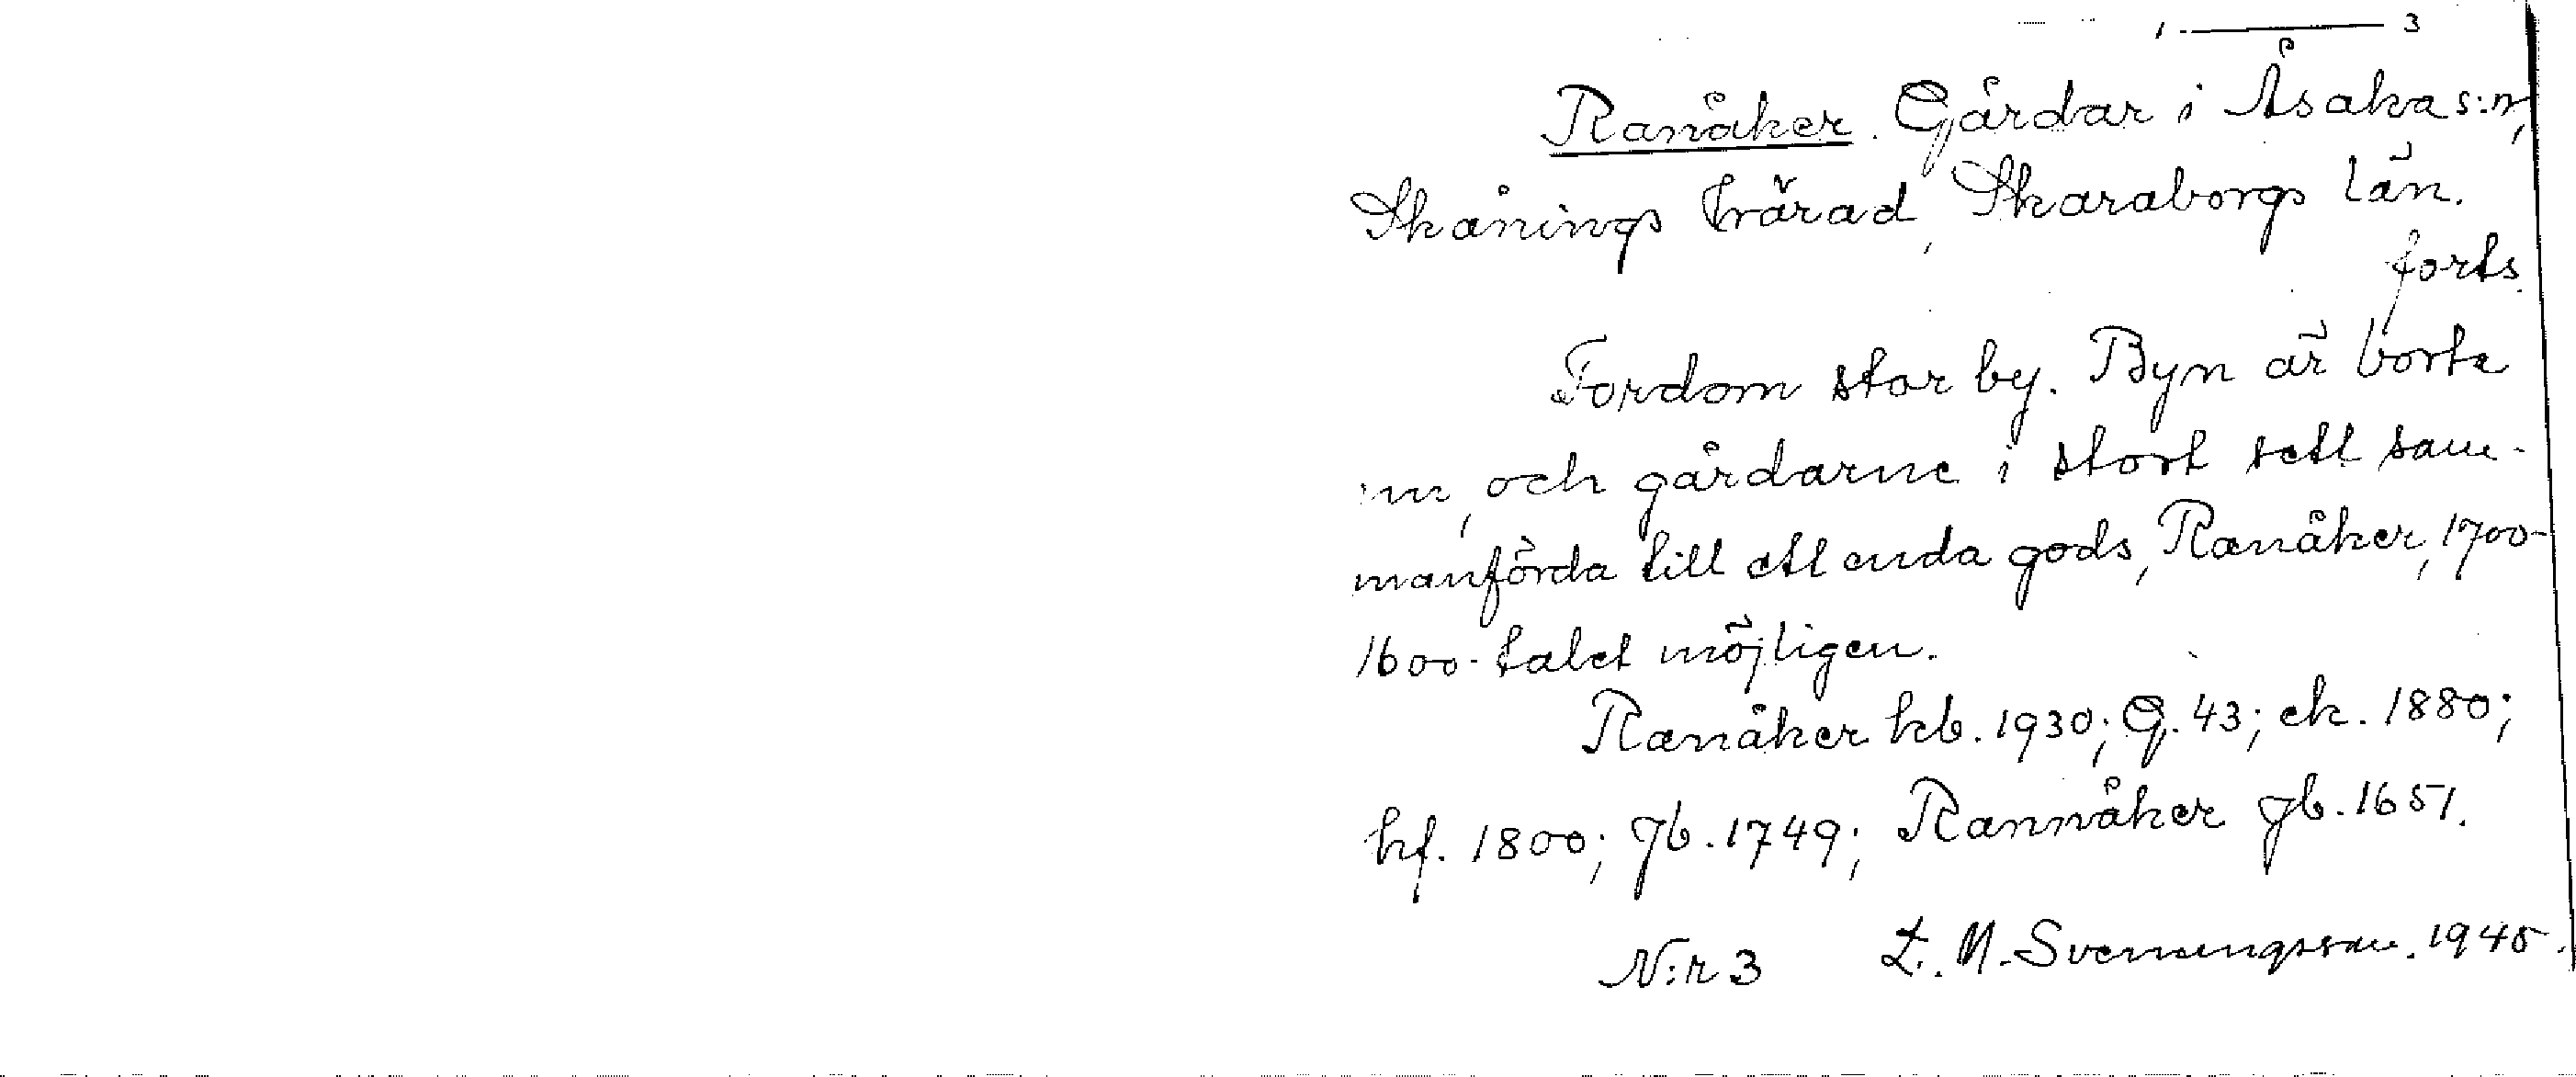 1 — 3
Ranåker. Gårdar i Åsaka s:n,
Skånings härad, Skaraborgs län.
forts.
Fordom stor by. Byn är borta
nu, och gårdarne i stort sett sam-
manförda till ett enda gods, Ranåker, 1700-
1600-talet möjligen.
Ranåker kb. 1930; G. 43; ek. 1880;
hf. 1800; Jb. 1749; Rannåker Jb. 1651.
N:r 3 L. M. Svenungsson. 1945.